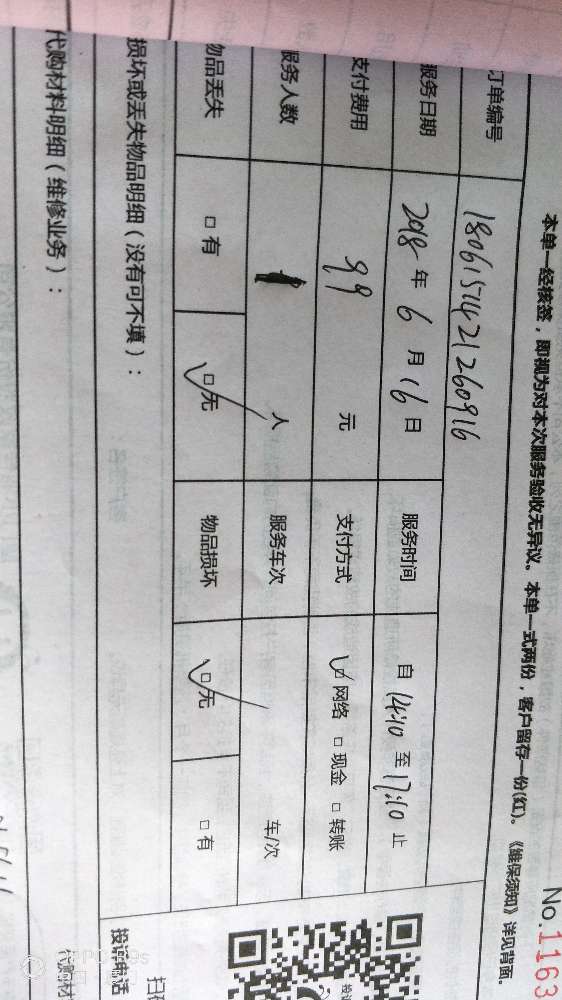 No.1163
本单一经核签，即视为对本次服务验收无异议。本单一式两份，客户留存一份(红)。《维保须知》详见背面。
订单编号 180615142126091​6
服务日期 2018 年 6 月 16 日 服务时间 自 14:10 至 17:10 止
支付费用 99 元 支付方式 □ 网络 □ 现金 □ 转账
服务人数 人 服务车次 车/次
物品丢失 □ 有 □ 无 物品损坏 □ 无 □ 有
损坏或丢失物品明细（没有可不填）：
投诉电话
代购材料明细（维修业务）：
代购材